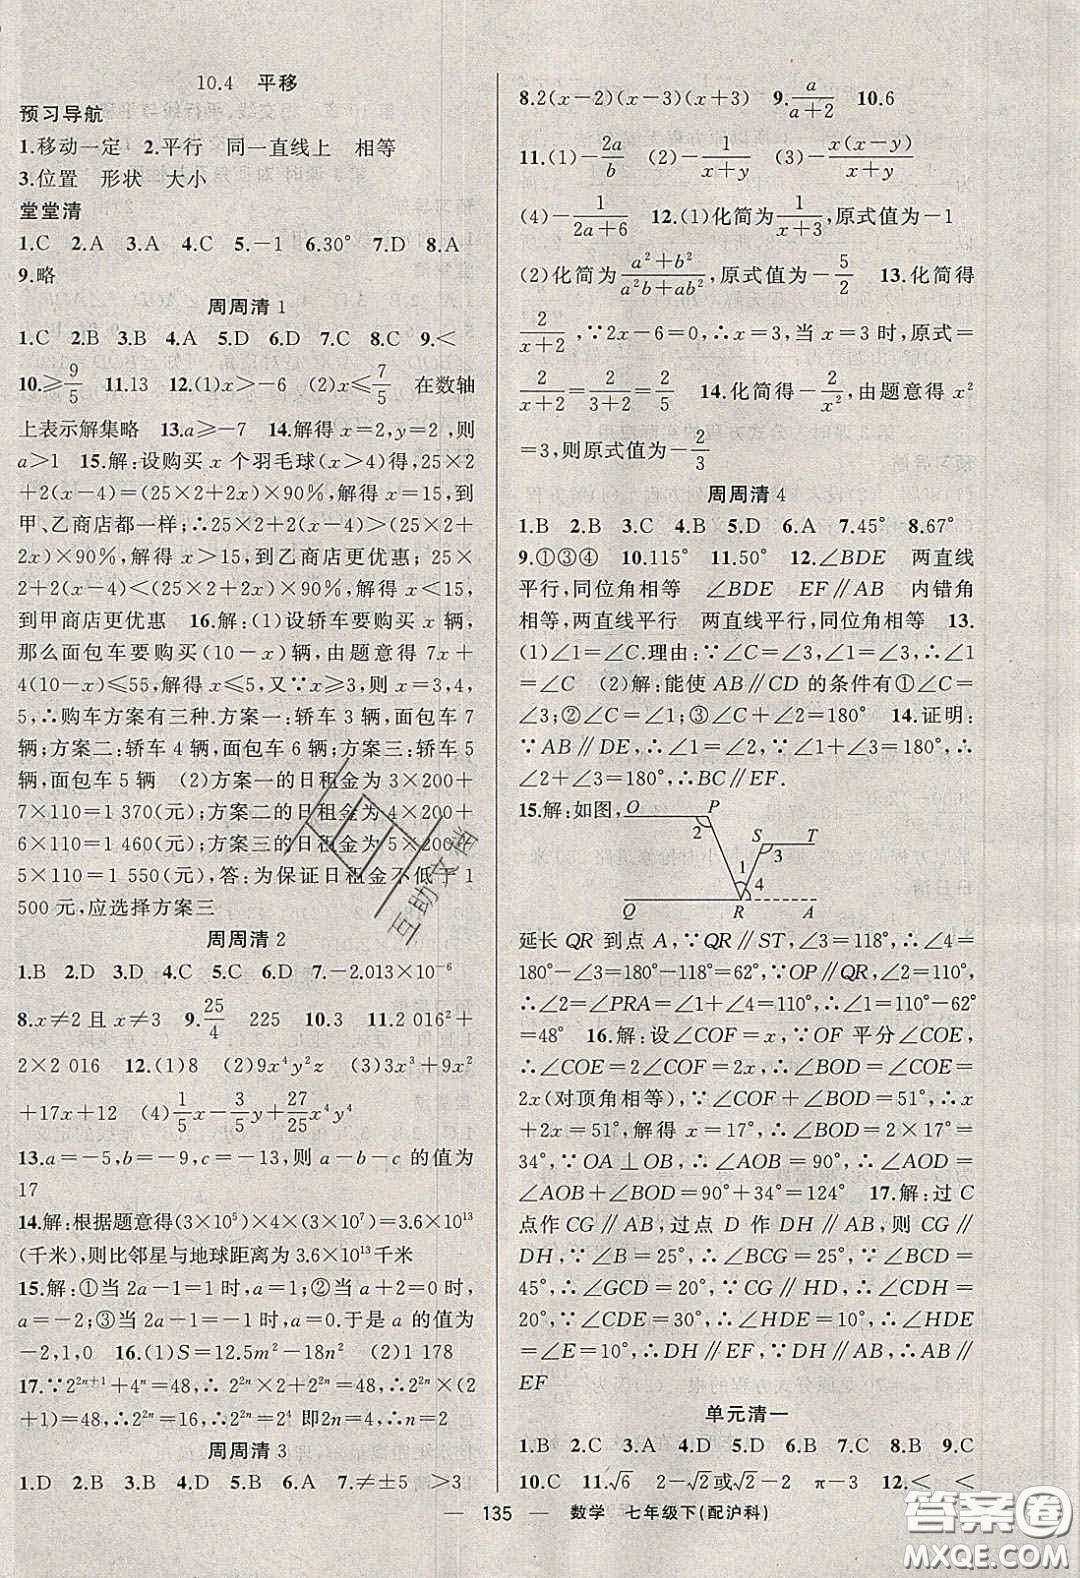 10.4 平移
预习导航
1.移动一定 2.平行 同一直线上 相等
3.位置 形状 大小
堂堂清
1.C 2.A 3.A 4.C 5.-1 6.30° 7.D 8.A
9.略
周周清1
1.C 2.B 3.B 4.A 5.D 6.D 7.C 8.C 9.<
10.≥9/5 11.13 12.(1)x>-6 (2)x≤7/5 在数轴
上表示解集略 13.a≥-7 14.解得x=2,y=2,则
a>1 15.解:设购买x个羽毛球(x>4)得,25×2
+2(x-4)=(25×2+2x)×90%,解得x=15,到
甲、乙商店都一样;∴25×2+2(x-4)>(25×2+
2x)×90%,解得x>15,到乙商店更优惠;25×
2+2(x-4)<(25×2+2x)×90%,解得x<15,
到甲商店更优惠 16.解:(1)设轿车要购买x辆,
那么面包车要购买(10-x)辆,由题意得7x+
4(10-x)≤55,解得x≤5,又∵x≥3,则x=3,4,
5,∴购车方案有三种.方案一:轿车3辆,面包车7
辆;方案二:轿车4辆,面包车6辆;方案三:轿车5
辆,面包车5辆 (2)方案一的日租金为3×200+
7×110=1 370(元);方案二的日租金为4×200+
6×110=1 460(元);方案三的日租金为5×200+
5×110=1 550(元),答:为保证日租金不低于1
500元,应选择方案三
周周清2
1.B 2.D 3.D 4.C 5.C 6.D 7.-2.013×10⁻⁶
8.x≠2且x≠3 9.25/4 225 10.3 11.2 016²+
2×2 016 12.(1)8 (2)9x⁴y²z (3)4x³+9x²
+17x+12 (4)1/5x-3/5y+27/25x⁴y⁴
13.a=-5,b=-9,c=-13,则a-b-c的值为
17
14.解:根据题意得(3×10⁵)×4×(3×10⁷)=3.6×10¹³
(千米),则比邻星与地球距离为3.6×10¹³千米
15.解:①当2a-1=1时,a=1;②当a+2=0时,
a=-2;③当2a-1=-1时,a=0.于是a的值为
-2,1,0 16.(1)S=12.5m²-18n² (2)1 178
17.∵2²ⁿ⁺¹+4ⁿ=48,∴2²ⁿ×2+2²ⁿ=48,∴2²ⁿ×(2
+1)=48,∴2²ⁿ=16,∴2²ⁿ=2⁴ 即2n=4,∴n=2
周周清3
1.D 2.B 3.D 4.B 5.A 6.A 7.≠±5 >3
8.2(x-2)(x-3)(x+3) 9.a/(a+2) 10.6
11.(1)-2a/b (2)-1/(x+y) (3)-x(x-y)/(x+y)
(4)-1/(2a+6) 12.(1)化简为1/(x+3),原式值为-1
(2)化简为(a²+b²)/(a²b+ab²),原式值为-5/2 13.化简得
2/(x+2),∵2x-6=0,∴x=3,当x=3时,原式=
2/(x+2)=2/(3+2)=2/5 14.化简得-2/x²,由题意得x²
=3,则原式值为-2/3
周周清4
1.B 2.B 3.C 4.B 5.D 6.A 7.45° 8.67°
9.①③④ 10.115° 11.50° 12.∠BDE 两直线
平行,同位角相等 ∠BDE EF∥AB 内错角
相等,两直线平行 两直线平行,同位角相等 13.
(1)∠1=∠C.理由:∵∠C=∠3,∠1=∠3,∴∠1
=∠C (2)解:能使AB∥CD的条件有①∠C=
∠3;②∠C=∠1;③∠C+∠2=180° 14.证明:
∵AB∥DE,∴∠1=∠2,∵∠1+∠3=180°,∴
∠2+∠3=180°,∴BC∥EF.
15.解:如图,
O P
2 S T
3
1
4
Q R A
延长QR到点A,∵QR∥ST,∠3=118°,∴∠4=
180°-∠3=180°-118°=62°,∵OP∥QR,∠2=110°,
∴∠2=∠PRA=∠1+∠4=110°,∴∠1=110°-62°
=48° 16.解:设∠COF=x,∵OF平分∠COE,
∴∠COE=2∠COF=2x,∴∠BOD=∠COE=
2x(对顶角相等),∵∠COF+∠BOD=51°,∴x
+2x=51°,解得x=17°,∴∠BOD=2×17°=
34°,∵OA⊥OB,∴∠AOB=90°,∴∠AOD=
∠AOB+∠BOD=90°+34°=124° 17.解:过C
点作CG∥AB,过点D作DH∥AB,则CG∥
DH,∵∠B=25°,∴∠BCG=25°,∵∠BCD=
45°,∴∠GCD=20°,∵CG∥HD,∴∠CDH=
20°,∵∠CDE=30°,∴∠HDE=10°,∴∠HDE
=∠E=10°,∴DH∥EF,∵DH∥AB,∴AB∥
EF
单元清一
1.B 2.C 3.A 4.D 5.C 6.B 7.C 8.B 9.C
10.C 11.√6 2-√2或√2-2 π-3 12.< <
— 135 — 数学 七年级下(配沪科)
互助文档
答案圈
MXQE.COM